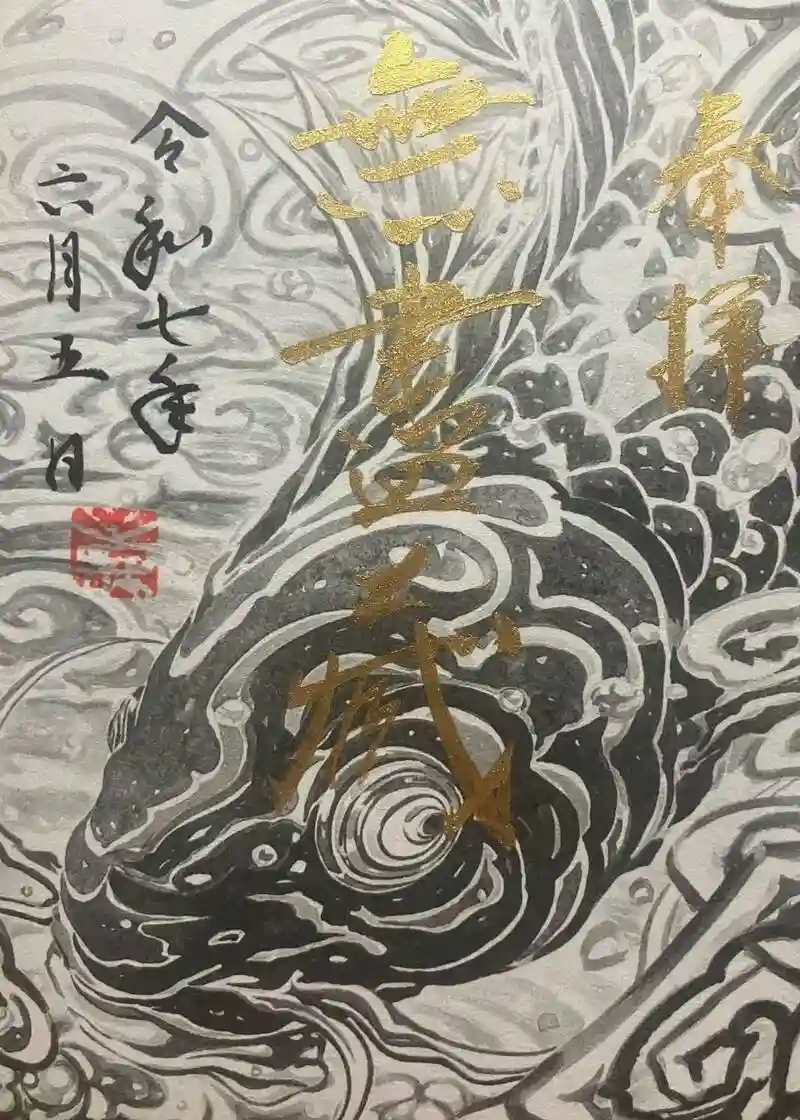 奉拝
無尽蔵
令和七年
六月五日